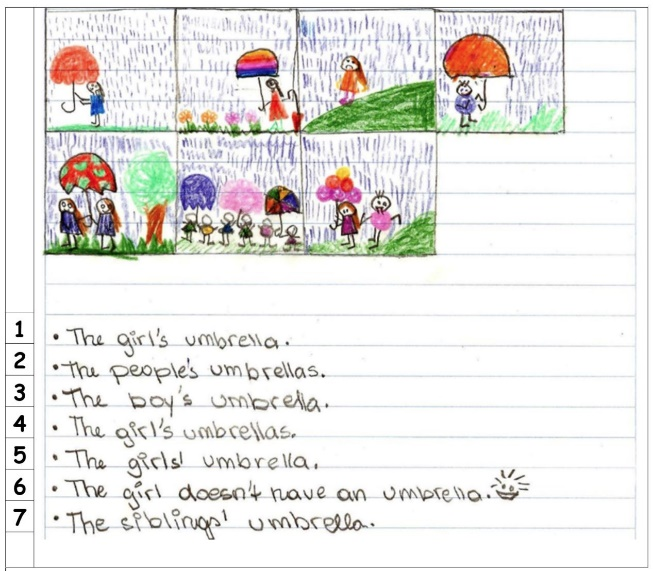 1 • The girl's umbrella.
2 • The people's umbrellas.
3 • The boy's umbrella.
4 • The girl's umbrellas.
5 • The girls' umbrella.
6 • The girl doesn't have an umbrella.
7 • The siblings' umbrella.